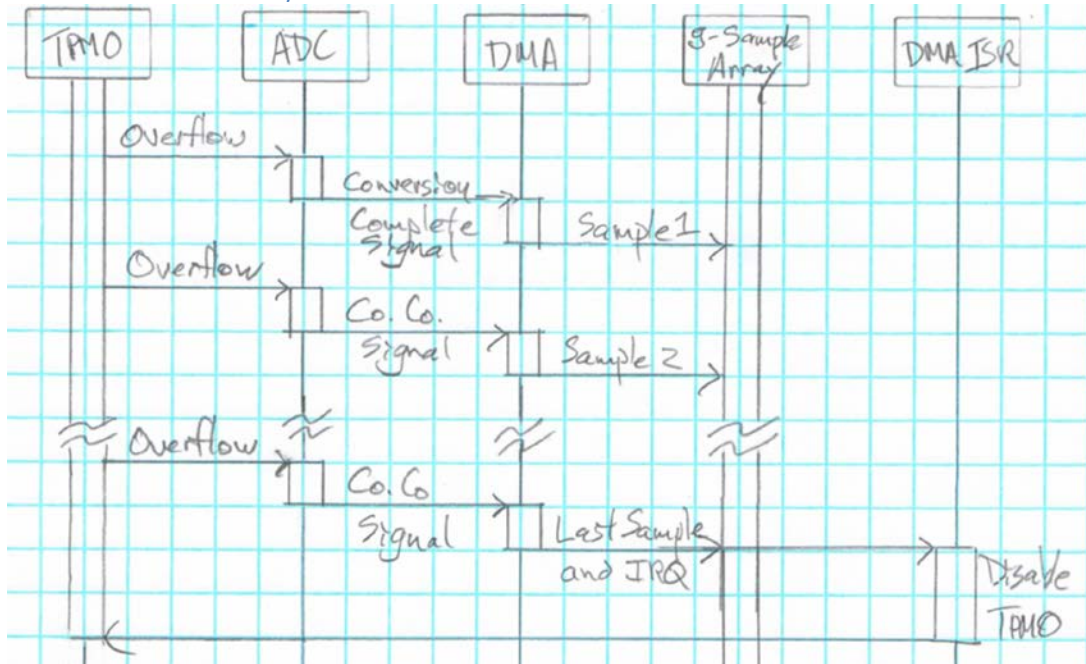 TPM0
ADC
DMA
g-Sample
Array
DMA ISR
Overflow
Conversion
Complete
Signal
Sample 1
Overflow
Co. Co.
Signal
Sample 2
Overflow
Co. Co
Signal
Last Sample
and IRQ
Disable
TPM0